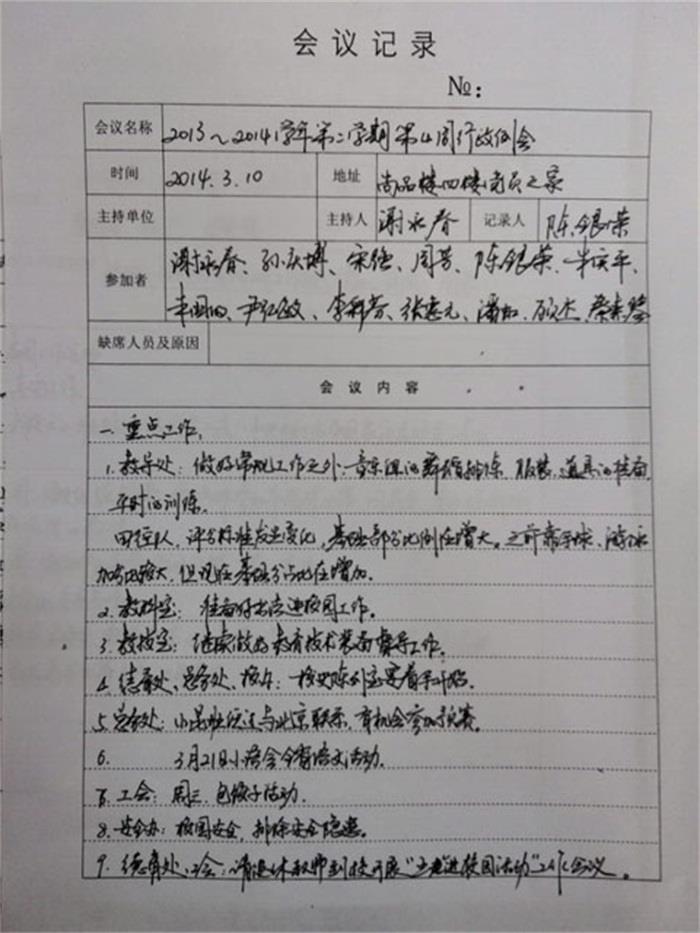 会议记录
№：
会议名称 2013～2014学年第二学期第4周行政例会
时间 2014.3.10 地址 尚品楼四楼党员之家
主持单位 主持人 谢永春 记录人 陈银荣
参加者 谢永春、孙庆博、宋强、周芳、陈银荣、
尹红政、李科芳、张惠元、潘加、
缺席人员及原因
会议内容
一、重点工作：
1. 教导处：做好常规工作之外，音乐课的舞蹈排练、服装、道具的准备，
平时的训练。
田径队，评分标准发生变化，基础部分比例在增大。之前靠手球、游泳
加分比较大，但现在基础分占比在增加。
2. 教科室：准备好书法进校园工作。
3. 教技室：继续做好教育技术装备督导工作。
4. 德育处、总务处、校办：校史陈列室着手开始。
5. 总务处：小昆班促进与北京联系，有机会参加预赛。
6. 3月21日小语会今青语文活动。
7. 工会：周三，包饺子活动。
8. 安全办：校园安全，排除安全隐患。
9. 德育处、工会：请退休教师到校开展“五老进校园活动”工作会议。